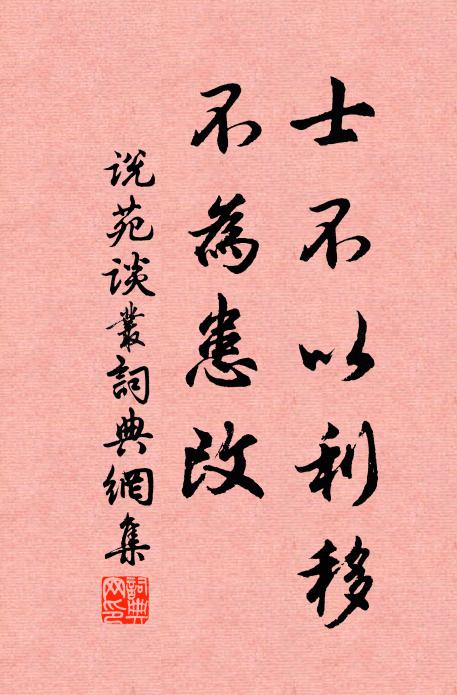 士不以利移
不為患改
说苑谈叢詞典網集
詞典网印